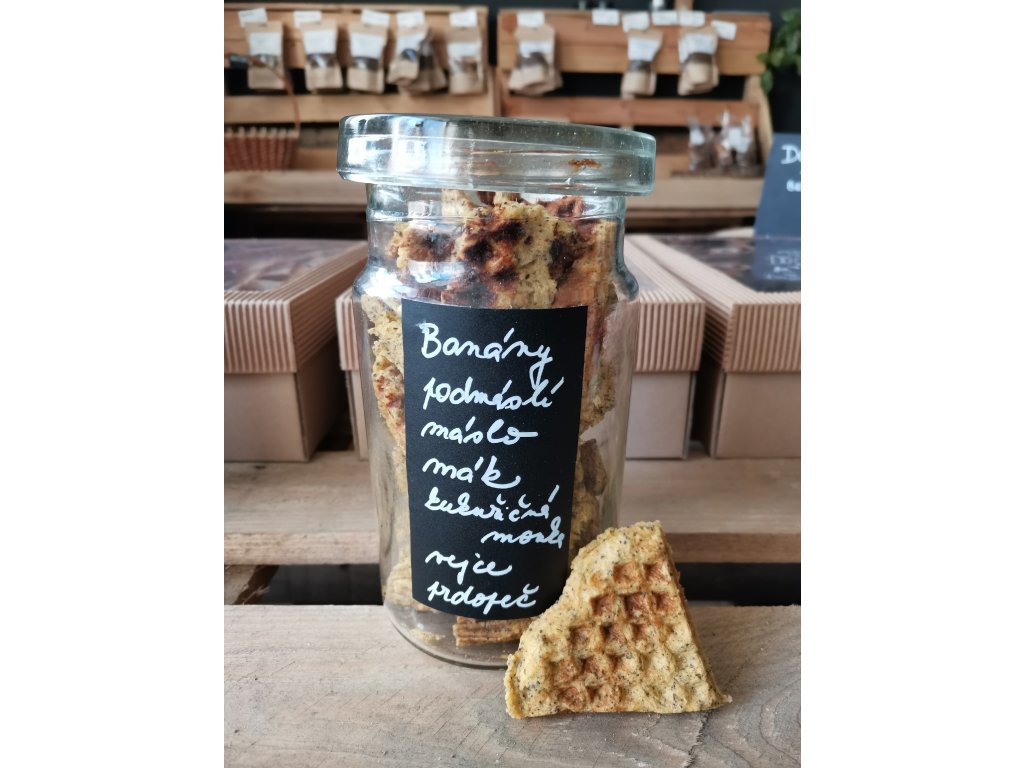 Banány
podmáslí
máslo
mák
kukuřičná
mouka
vejce
prdopeč